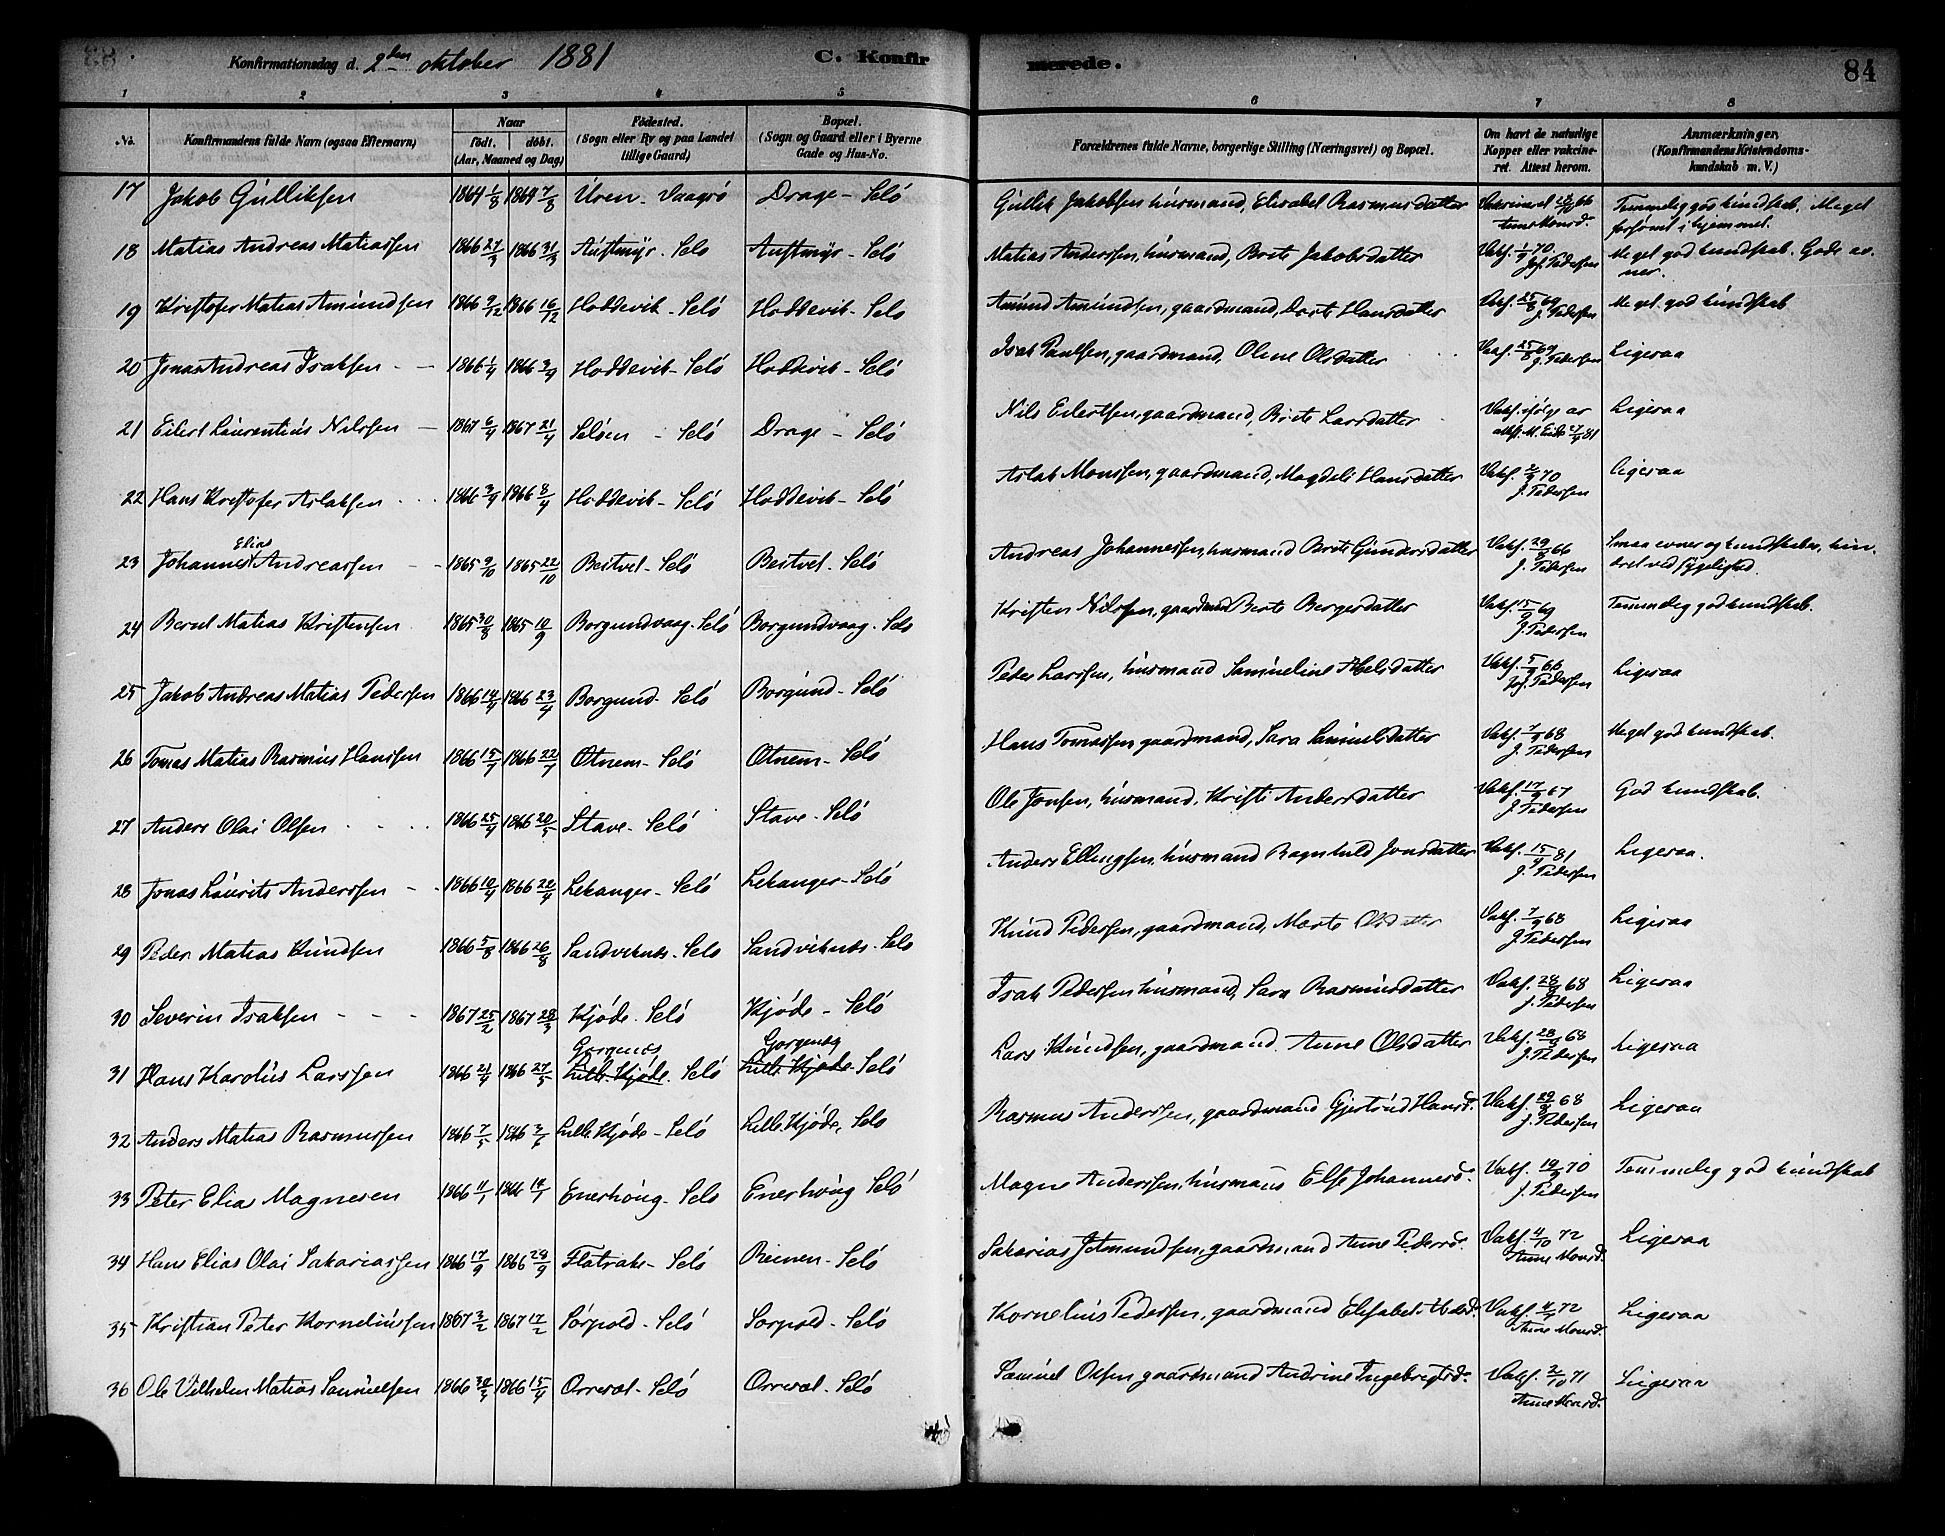 Konfirmationsdag d. 2den oktober 1881 C. Konfirmerede. 84
1 2 3 4 5 6 7 8
No. Konfirmandens fulde Navn (ogsaa Efternavn) Naar født. døbt. (Aar, Maaned og Dag) Fødested. (Sogn eller By og paa Landet tillige Gaard) Bopæl. (Sogn og Gaard eller i Byerne Gade og Hus-No. Forældrenes fulde Navne, borgerlige Stilling (Næringsvei) og Bopæl. Om havt de naturlige Kopper eller vaccineret. Attest herom. Anmærkninger. (Konfirmandens Kristendomskundskab m. V.)
17 Jakob Gulliksen 1864 1/8 1864 7/8 Uren - Vaagsø Drage - Selö Gullik Jakobsen husmand, Elisabet Rasmusdatter Vakcineret 66 Anne Monsd. Temmelig god kundskab. Meget forsømt i hjemmet.
18 Matias Andreas Matiassen 1866 27/3 1866 31/3 Austmyr - Selö Austmyr - Selö Matias Anderssen, husmand, Brite Jakobsdatter Vakc. 1/9 70 Jof. Pedersen Meget god kundskab. Gode evner.
19 Kristofer Matias Amundsen 1866 9/12 1866 16/12 Hoddevik - Selö Hoddevik - Selö Amund Amundsen, gaardmand, Dorte Hansdatter Vakc. 25/8 69 J. Pedersen Meget god kundskab
20 Jonas Andreas Isaksen 1866 1/4 1866 3/4 Hoddevik - Selö Hoddevik - Selö Isak Paulsen, gaardmand, Oline Olsdatter Vakc. 25/8 69 J. Pedersen Ligesaa
21 Eilert Laurentius Nilssen 1867 6/4 1867 21/4 Selöen - Selö Drage - Selö Nils Eilertsen, gaardmand, Brite Larsdatter Vakc. ifølge av attest M. Eide 17/9 81 Ligesaa
22 Hans Kristofer Aslaksen 1866 3/4 1866 8/4 Hoddevik - Selö Hoddevik - Selö Aslak Monssen, gaardmand, Magdeli Hansdatter Vakc. 2/9 70 J. Pedersen Ligesaa
23 Johannes Elias Andreassen 1865 9/10 1865 22/10 Beitvet - Selö Beitvet - Selö Andreas Johannessen, husmand Brite Gundersdatter Vakc. 29/8 66 J. Pedersen Smaa evner og kundskaber, hindret ved sygelighed.
24 Bernt Matias Kristensen 1865 30/8 1865 10/9 Borgundvaag - Selö Borgundvaag - Selö Kristen Nilssen, gaardmand Berte Bergersdatter Vakc. 15/9 69 J. Pedersen Temmelig god kundskab.
25 Jakob Andreas Matias Pedersen 1866 14/4 1866 23/4 Borgund - Selö Borgund - Selö Peder Larssen, husmand Samueline Abelsdatter Vakc. 5/9 66 Jof. Pedersen Ligesaa
26 Tomas Matias Rasmus Hanssen 1866 15/7 1866 22/7 Otnem - Selö Otnem - Selö Hans Tomassen gaardmand, Sara Samuelsdatter Vakc. 7/9 68 J. Pedersen Meget god kundskab.
27 Anders Olai Olsen 1866 25/4 1866 20/5 Stave - Selö Stave - Selö Ole Jonsen, husmand, Kristi Andersdatter Vakc. 17/9 67 J. Pedersen God kundskab.
28 Jonas Laurits Anderssen 1866 10/4 1866 20/4 Lekanger - Selö Lekanger - Selö Anders Ellingsen, husmand Ragnhild Jonsdatter Vakc. 15/9 81 J. Pedersen Ligesaa.
29 Peder Matias Knudsen 1866 5/8 1866 26/8 Sandviknæs - Selö Sandviknæs - Selö Knud Pedersen, gaardmand, Marte Olsdatter Vakc. 7/9 68 J. Pedersen Ligesaa
30 Severin Isaksen 1867 25/2 1867 28/3 Kjöde - Selö Kjöde - Selö Isak Pedersen husmand, Sara Rasmusdatter Vakc. 28/8 68 J. Pedersen Ligesaa
31 Hans Karolus Larssen 1866 21/4 1866 27/5 Gorgenæs Lille-Kjöde - Selö Gorgenæs Lille-Kjöde - Selö Lars Knudsen, gaardmand. Anne Olsdatter Vakc. 28/8 68 J. Pedersen Ligesaa
32 Anders Matias Rasmussen 1866 7/5 1866 3/6 Lille Kjöde - Selö Lille Kjöde, Selö Rasmus Anderssen, gaardmand Gjertrud Hansd. Vakc. 29/8 68 J. Pedersen Ligesaa
33 Peter Elias Magnesen 1866 11/1 1866 14/1 Enerhoug - Selö Enerhoug Selö Magne Anderssen, husmand Else Johannesd. Vakc. 19/9 70 J. Pedersen Temmelig god kundskab
34 Hans Elias Olai Sakariassen 1866 17/9 1866 29/9 Flatrake - Selö Reinen - Selö Sakarias Jetmundsen, gaardmand Anne Pedersd. Vakc. 4/10 72 Anne Monsd. Ligesaa
35 Kristian Peter Korneliussen 1867 3/2 1867 17/2 Sörpold - Selö Sorpold - Selö Kornelius Pedersen, gaardmand Elisabet Vakc. 72 Anne Monsd. Ligesaa
36 Ole Vilhelm Matias Samuelsen 1866 30/3 1866 15/4 Orrevæl - Selö Orrevæl - Selö Samuel Olsen gaardmand Andrine Ingebrigtsd. Vakc. 2/10 71 Anne Monsd. Ligesaa